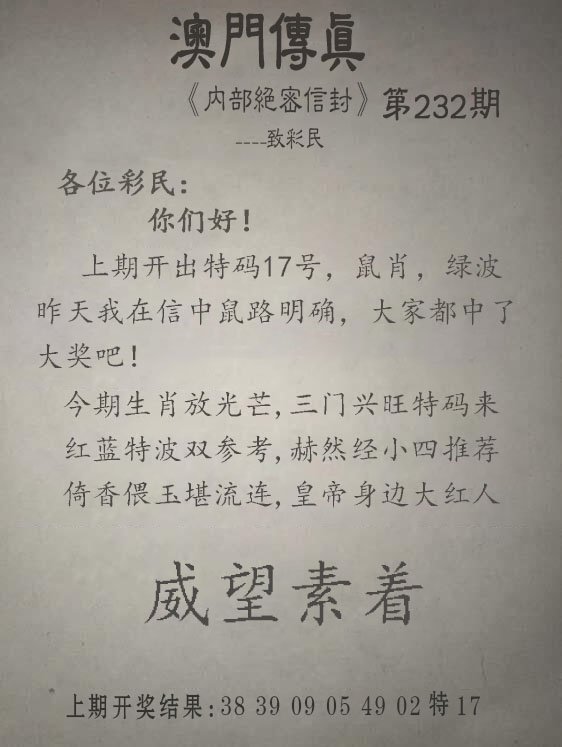 澳門傳真
《内部絕密信封》第232期
----致彩民
各位彩民：
你们好！
上期开出特码17号，鼠肖，绿波
昨天我在信中鼠路明确，大家都中了
大奖吧！
今期生肖放光芒,三门兴旺特码来
红蓝特波双参考,赫然经小四推荐
倚香偎玉堪流连,皇帝身边大红人
威望素着
上期开奖结果:38 39 09 05 49 02 特 17